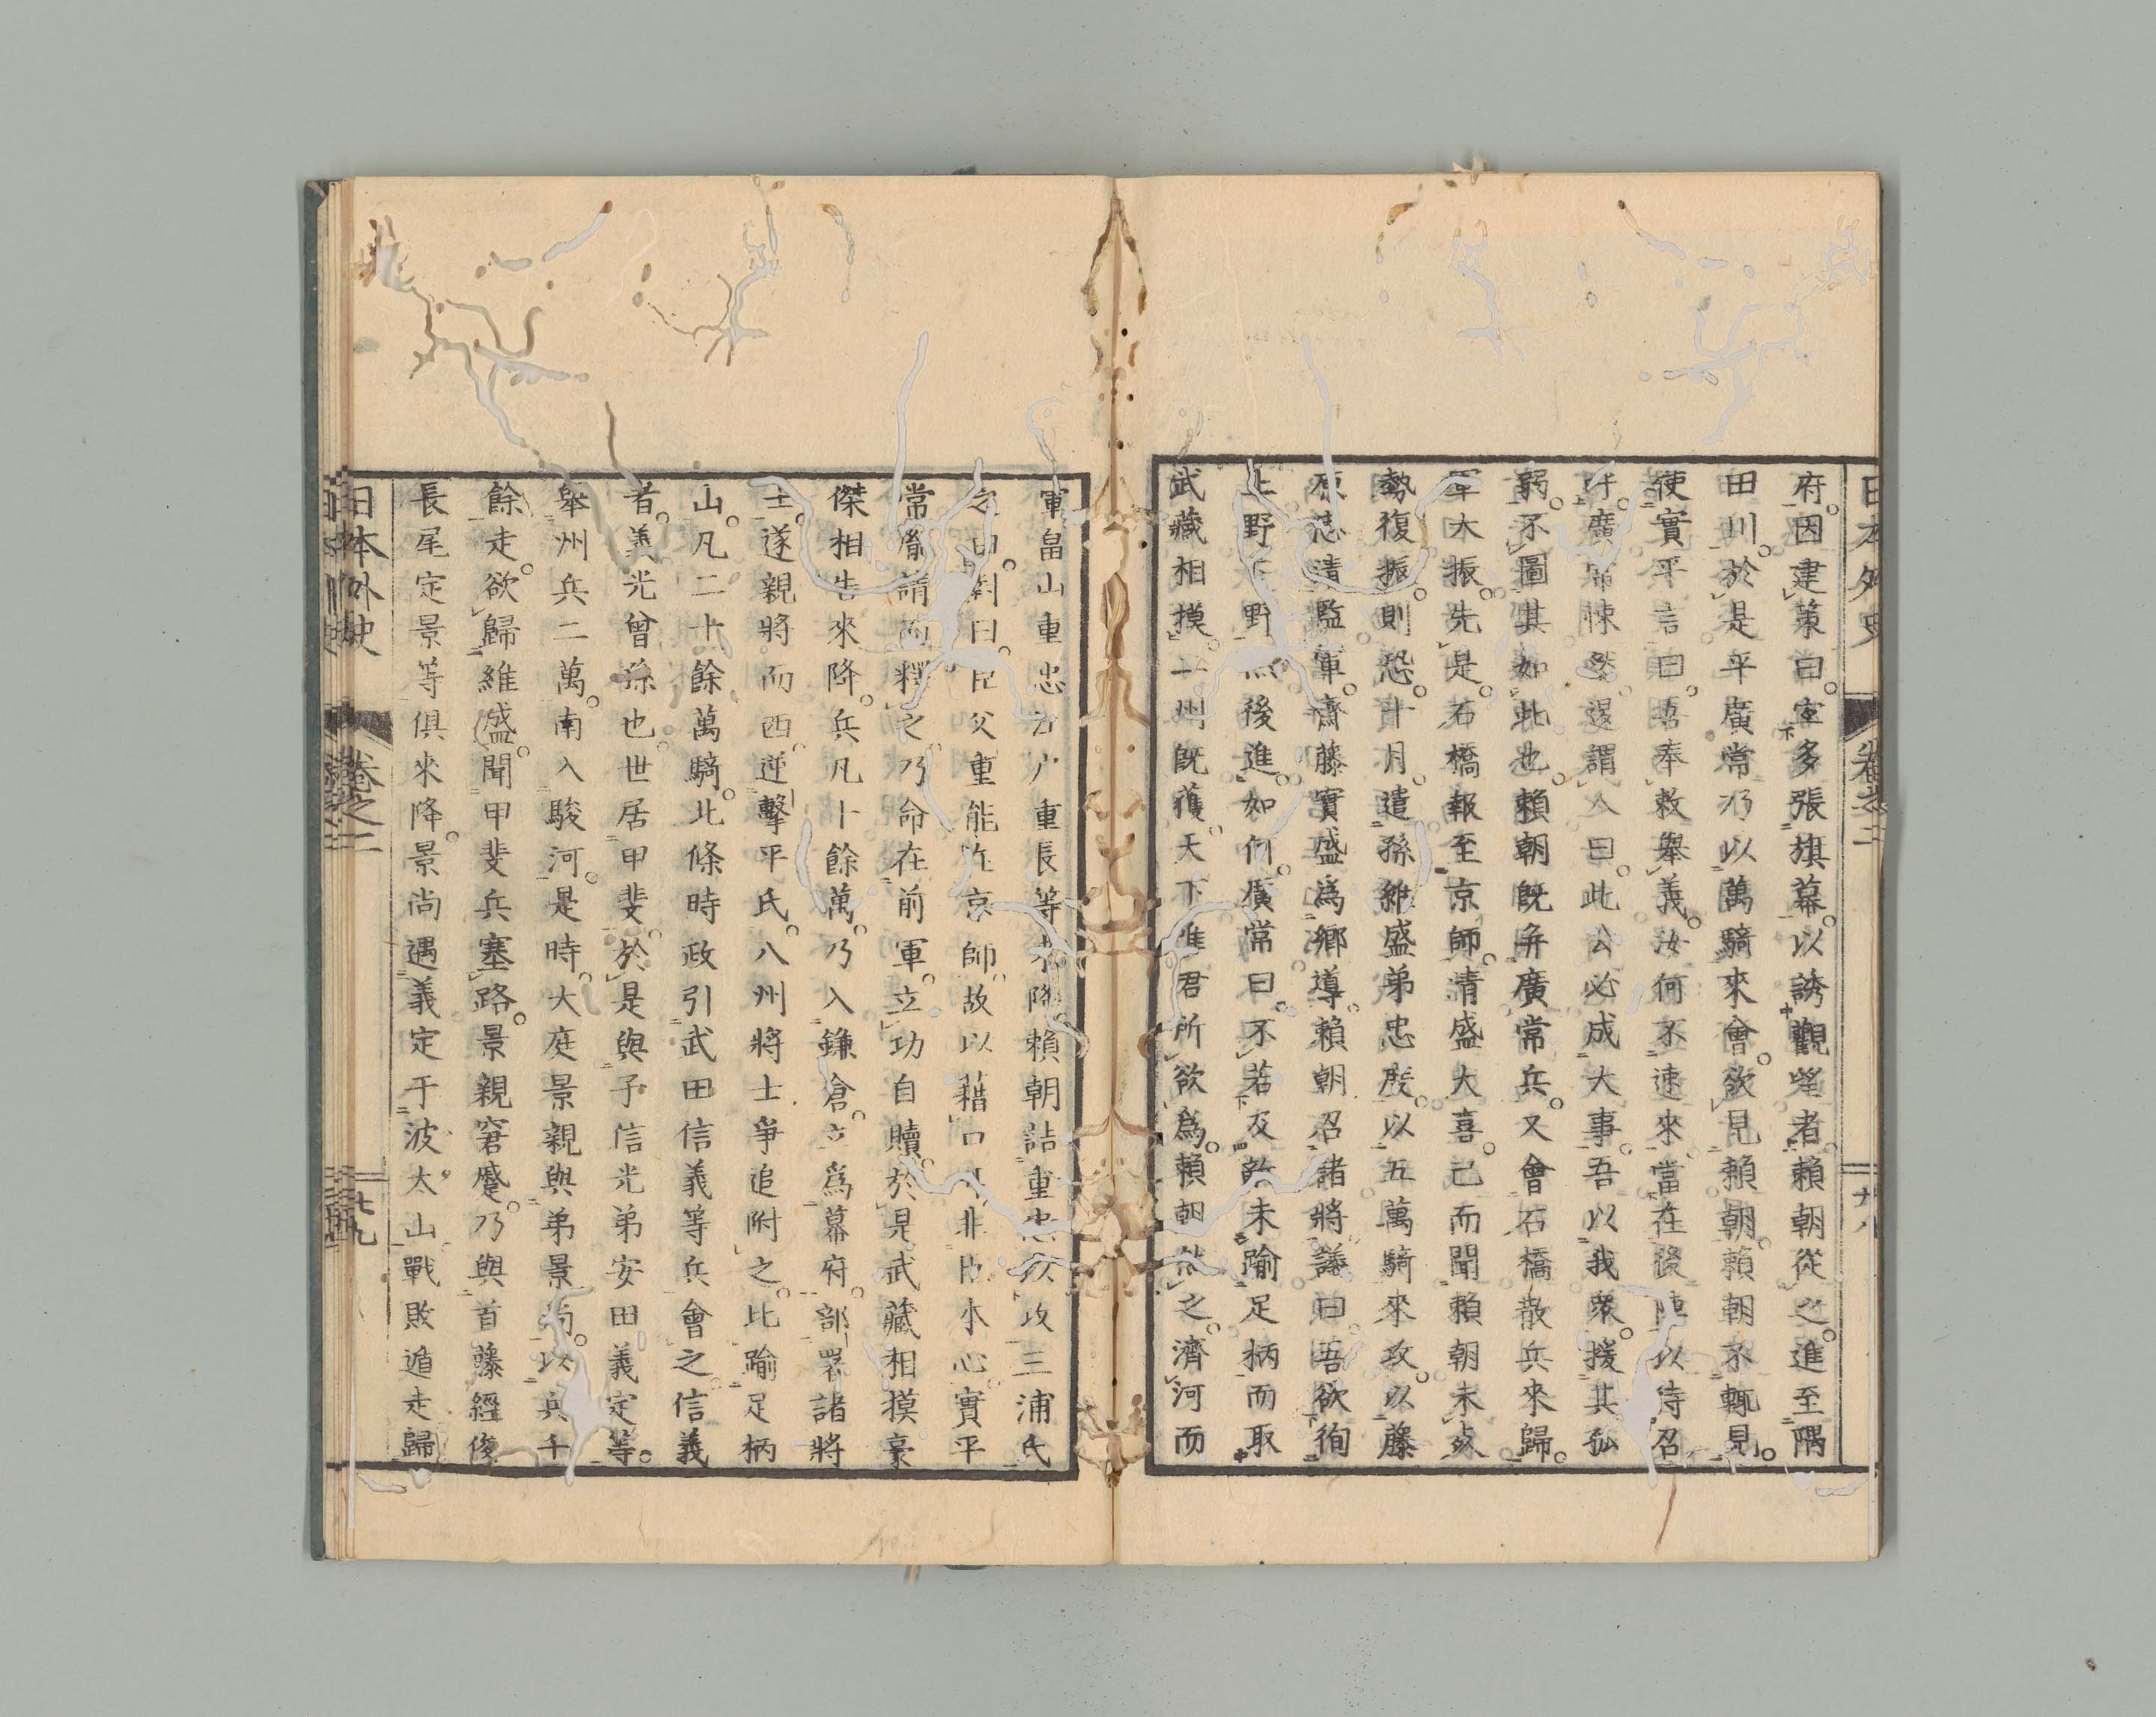 府因建策曰宜多張旗幕以誘觀望者賴朝從之進至隅
田川於是平廣常乃以萬騎來會欲見賴朝賴朝不輙見
使實平言曰吾奉敕舉義汝何不速來當在後陣以待召
廣常悚然退謂人曰此公必成大事吾以我衆援其孤
弱不圖其如此也賴朝既并廣常兵又會石橋散兵來歸
軍大振先是石橋報至京師清盛大喜已而聞賴朝未死
勢復振則恐十月遣孫維盛弟忠度以五萬騎來攻以藤
原忠清監軍齋藤實盛爲鄉導賴朝召諸將議曰吾欲徇
上野下野然後進如何廣常曰不若及敵未踰足柄而取
武藏相摸二州既獲天下唯君所欲爲賴朝然之濟河而
軍畠山重忠江戶重長等來降賴朝詰重忠以攻三浦氏
之由對曰臣父重能在京師故以藉口耳非臣本心實平
常胤請而釋之乃命在前軍立功自贖於是武藏相摸豪
傑相告來降兵凡十餘萬乃入鎌倉立爲幕府部署諸將
士遂親將而西逆擊平氏八州將士爭追附之比踰足柄
山凡二十餘萬騎北條時政引武田信義等兵會之信義
者義光曾孫也世居甲斐於是與子信光弟安田義定等
舉州兵二萬南入駿河是時大庭景親與弟景尚以兵千
餘走欲歸維盛聞甲斐兵塞路景親窘蹙乃與首藤經俊
長尾定景等俱來降景尚遇義定于波太山戰敗遁走歸
日本外史
卷之二
廿九